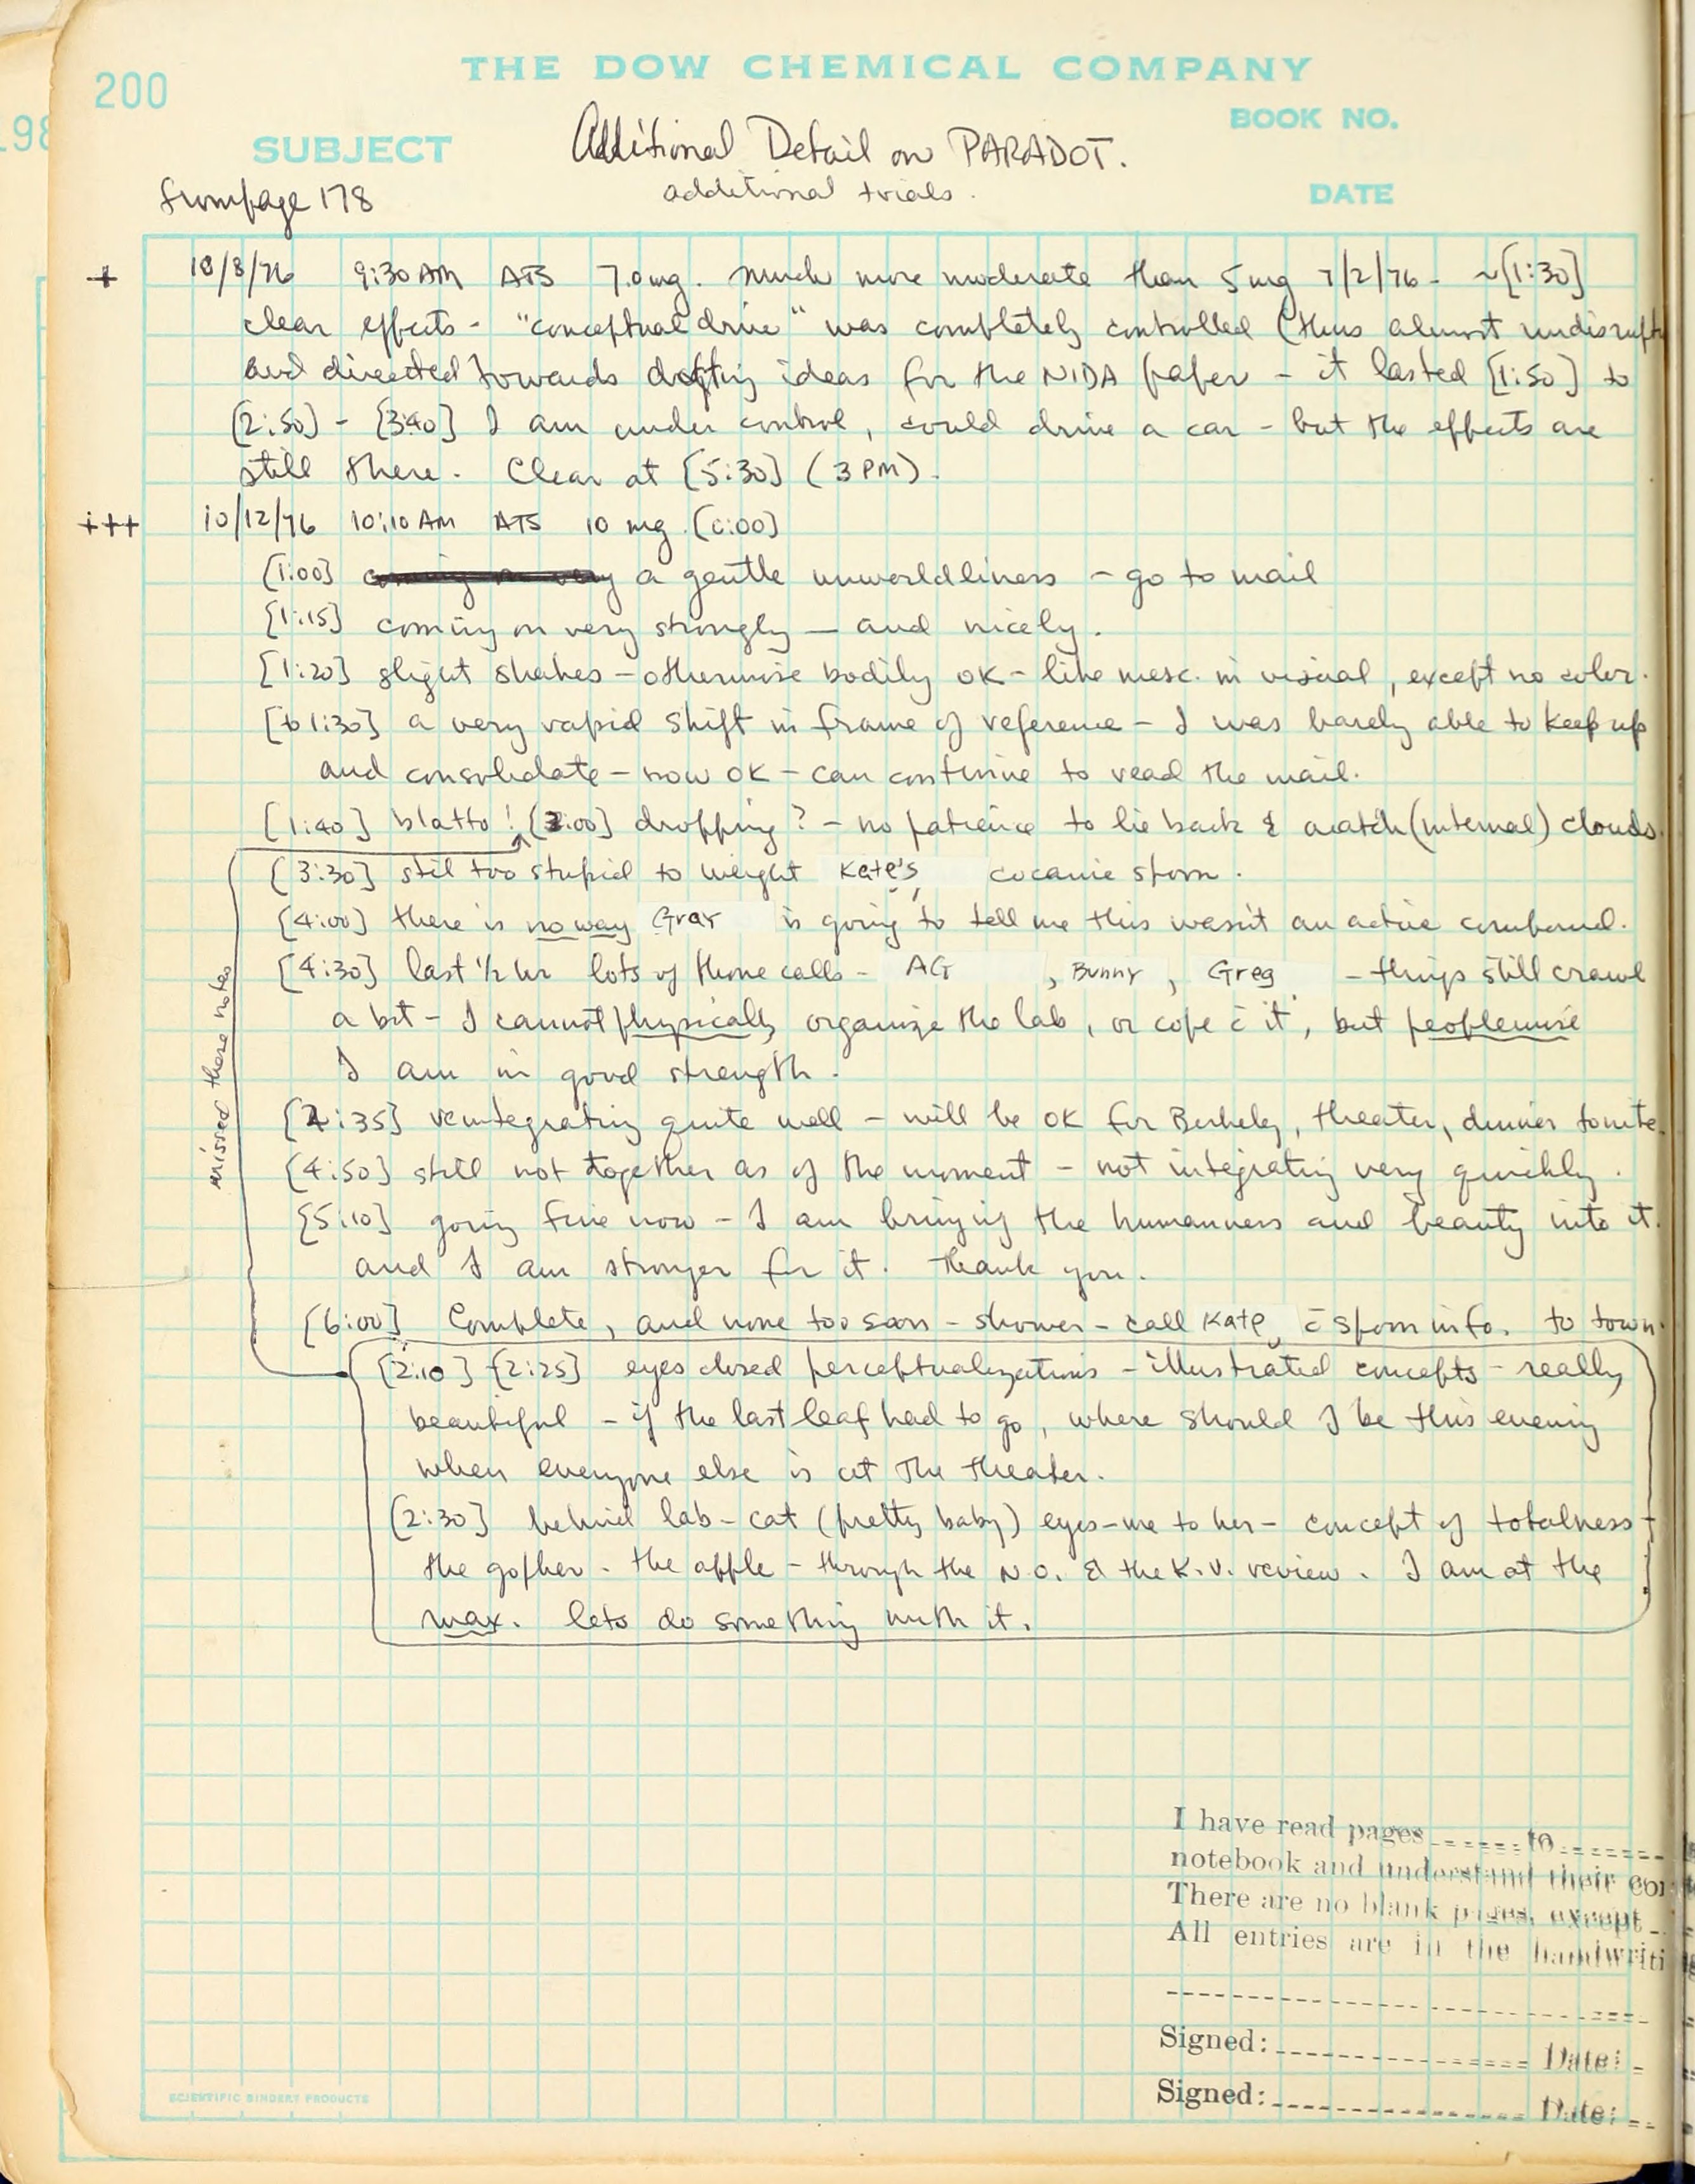 200
THE DOW CHEMICAL COMPANY
198
BOOK NO.
SUBJECT
Additional Detail on PARADOT.
from page 178
additional trials.
DATE
+ 10/8/76 9:30 AM ATS 7.0 mg. Much more moderate than 5 mg 7/2/76 - ~[1:30]
clear effects - "conceptual drive" was completely controlled (thus almost
and directed towards drafting ideas for the NIDA paper - it lasted [1:50] to
[2:50] - [3:40] I am under control, could drive a car - but the effects are
still there. Clear at [5:30] (3 PM).
+++ 10/12/76 10:10 AM ATS 10 mg. [0:00]
[1:00] a gentle unworldliness - go to mail
[1:15] coming on very strongly - and nicely.
[1:20] slight shakes - otherwise bodily OK - like mesc. in visual, except no color.
[to 1:30] a very rapid shift in frame of reference - I was barely able to keep up
and consolidate - now OK - can continue to read the mail.
[1:40] blatto! [3:00] dropping? - no patience to lie back & watch (internal) clouds.
[3:30] still too stupid to weight Kate's cocaine sporm.
[4:00] there is no way Gray is going to tell me this wasn't an active compound.
[4:30] last ½ hr lots of phone calls - AG, Bunny, Greg - things still crawl
a bit - I cannot physically organize the lab, or cope c̄ it, but peoplewise
I am in good strength.
[4:35] reintegrating quite well - will be OK for Berkeley, theater, dinner tonite.
[4:50] still not together as of the moment - not integrating very quickly.
[5:10] going fine now - I am bringing the humanness and beauty into it.
and I am stronger for it. Thank you.
[6:00] Complete, and none too soon - shower - call Kate, c̄ sporm info. to town.
missed these notes
[2:10] [2:25] eyes closed perceptualizations - illustrated concepts - really
beautiful - if the last leaf had to go, where should I be this evening
when everyone else is at the theater.
[2:30] behind lab - cat (pretty baby) eyes - me to her - concept of totalness -
the gopher - the apple - through the N.O. & the K.V. review. I am at the
max. lets do something with it.
I have read pages to
notebook and understand their con
There are no blank pages, except
All entries are in the handwriti
Signed: Date:
Signed: Date:
SCIENTIFIC BINDERY PRODUCTS